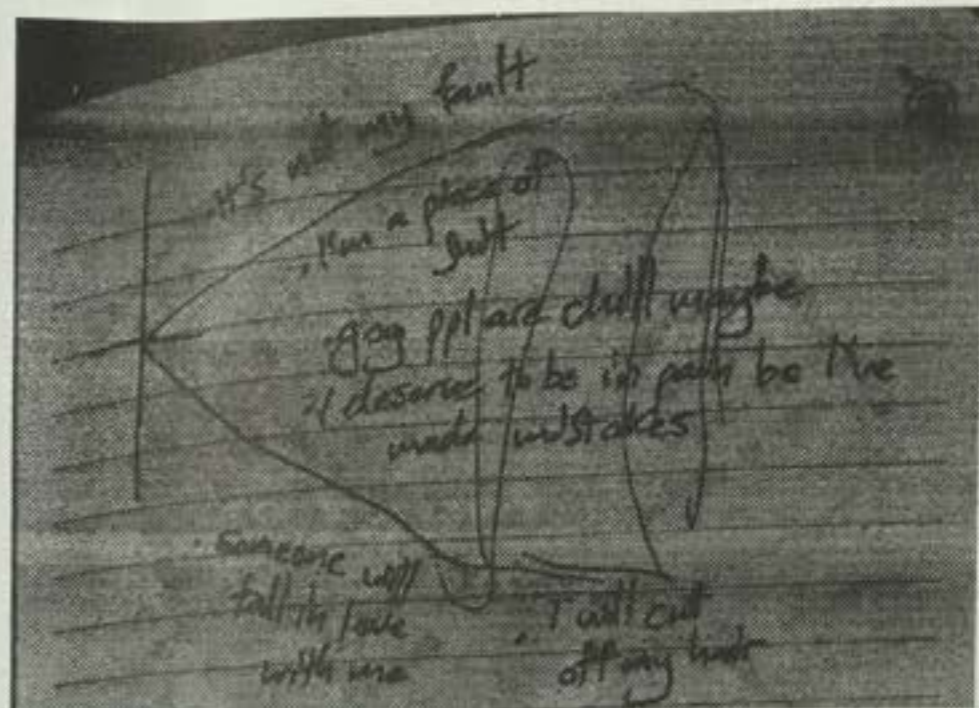 .It's not my fault
.I'm a piece of
shit
.gay ppl are chill maybe
.I deserve to be in pain bc I've
made mistakes
.someone will
fall in love
with me
.I will cut
off my hair